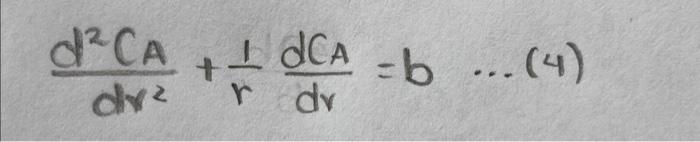 d²CA/dr² + 1/r dCA/dr = b ...(4)